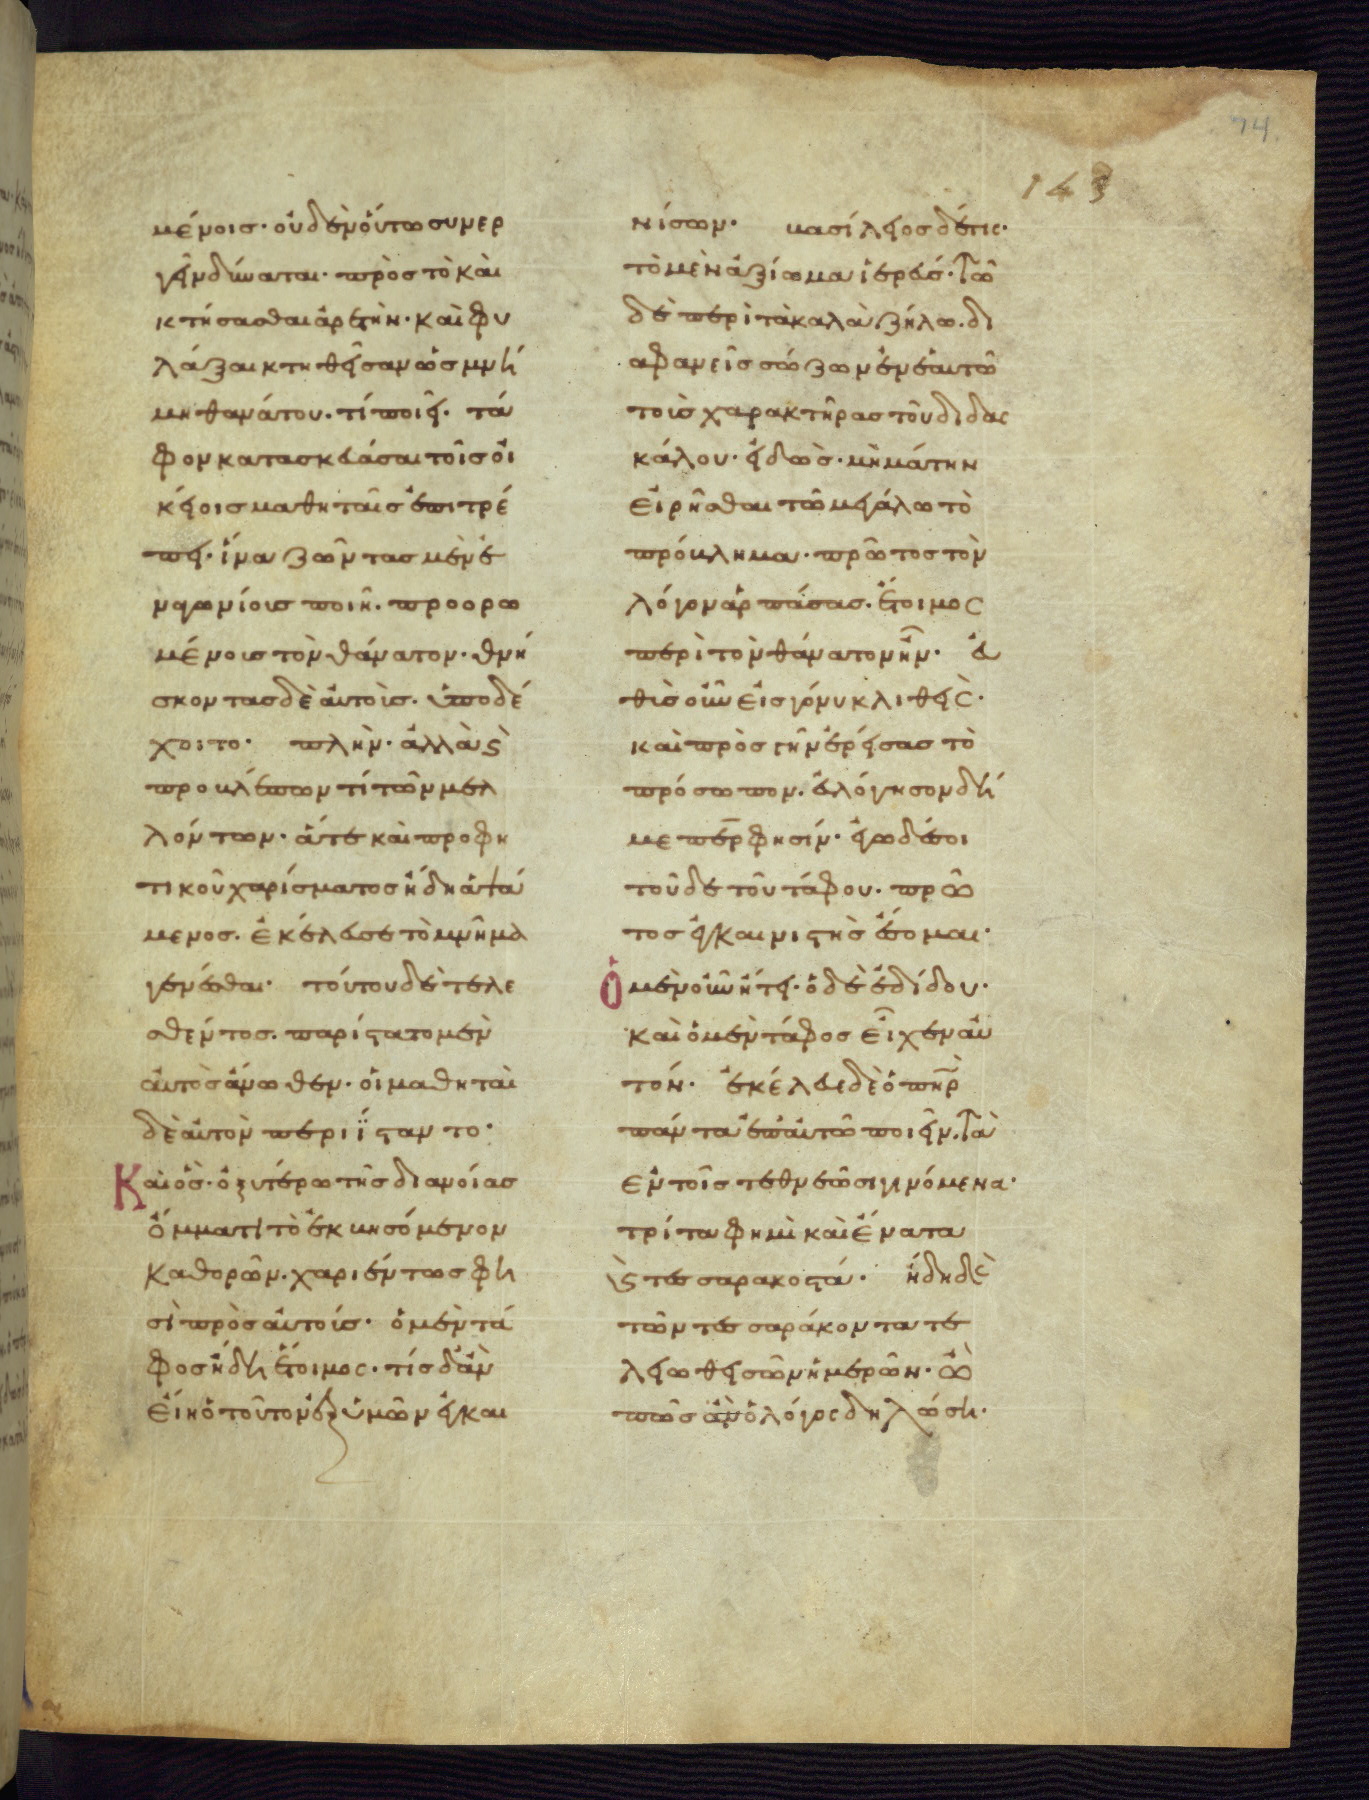 74
143
μένοις· οὐδὲν οὕτω συνερ
γεῖν δύναται· πρὸς τὸ καὶ
κτήσασθαι ἀρετήν· καὶ φυ
λάξαι κτηθεῖσαν ὡς μνή
μη θανάτου· τί ποιεῖ· τά
φον κατασκευάσαι τοῖς οἰ
κείοις μαθηταῖς ἐπιτρέ
πει· ἵνα ζῶντας μὲν ἐ
μφωνίοις ποιῆ· προορω
μένοις τὸν θάνατον· θνή
σκοντας δὲ αὐτοὺς· ὑποδέ
χοιτο· πλὴν· ἀλλὰ ϛ
προβλέπων τί τῶν μελ
λόντων· ἅτε καὶ προφη
τικοῦ χαρίσματος ἤδη ἁψά
μενος· ἐκέλευσε τὸ μνῆμα
γενέσθαι· τούτου δὲ τελε
σθέντος· παρίστατο μὲν
αὐτὸς ἄνωθεν· οἱ μαθηταὶ
δὲ αὐτὸν περιΐσταντο·
Καὶ ὃς· ὀξυτέρω τῆς διανοίας
ὄμματι τὸ ἐκβησόμενον
καθορῶν· χαριέντως φη
σὶ πρὸς αὐτούς· ὁ μὲν τά
φος ἤδη ἕτοιμος· τίς δ' ἂν
εἴη ὁ τοῦτον ἐξ ὑμῶν ἐγκαι
νίσων· βασίλειος δέ τις·
τὸ μὲν ἀξίωμα ἱερεύς· τῶ
δὲ περὶ τὰ καλὰ ζήλω· δι
αφανεῖς σώζων ἐν ἑαυτῶ
τοὺς χαρακτῆρας τοῦ διδασ
κάλου· εἰδὼς· μὴ μάτην
εἰρῆσθαι τῶ μεγάλω τὸ
πρόβλημα· πρῶτος τὸν
λόγον ἁρπάσας· ἕτοιμος
περὶ τὸν θάνατον ἦν· εὐ
θὺς οὖν εἰς γόνυ κλιθεὶς·
καὶ πρὸς γῆν ἐρείσας τὸ
πρόσωπον· εὐλόγησον δή
με περ φησίν· ἐγὼ δέ σοι
τοῦδε τοῦ τάφου· πρῶ
τος ἐγκαινιστὴς ἔσομαι·
Ὁ μὲν οὖν ἤτει· ὁ δὲ ἐδίδου·
καὶ ὁ μὲν τάφος εἶχεν αὐ
τόν· ἐκέλευε δὲ ὁ πηρ
πάντα ἐπ' αὐτῶ ποιεῖν· τὰ
ἐν τοῖς τεθνεῶσι γινόμενα·
τρίτα φημὶ καὶ ἔνατα
ϛ τεσσαρακοστά· ἤδη δὲ
τῶν τεσσαράκοντα τε
λειωθεισῶν ἡμερῶν· ὢ
πῶς ἂν ὁ λόγος δηλώση·